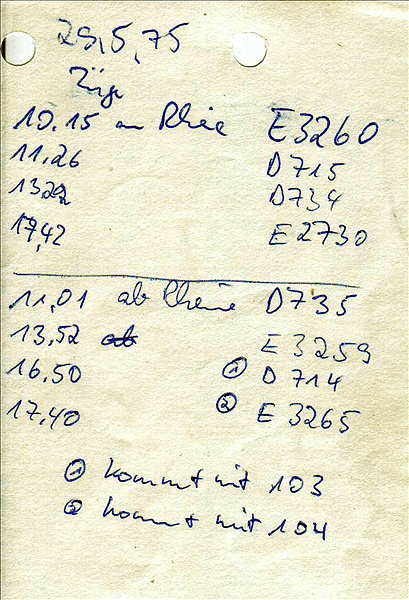 29,5,75
Züge
10.15 an Rheine E3260
11,26 D715
13,22 D734
17,42 E2730
11,01 ab Rheine D735
13,52 ab E3259
16,50 ① D714
17,40 ② E3265
① kommt mit 103
② kommt mit 104